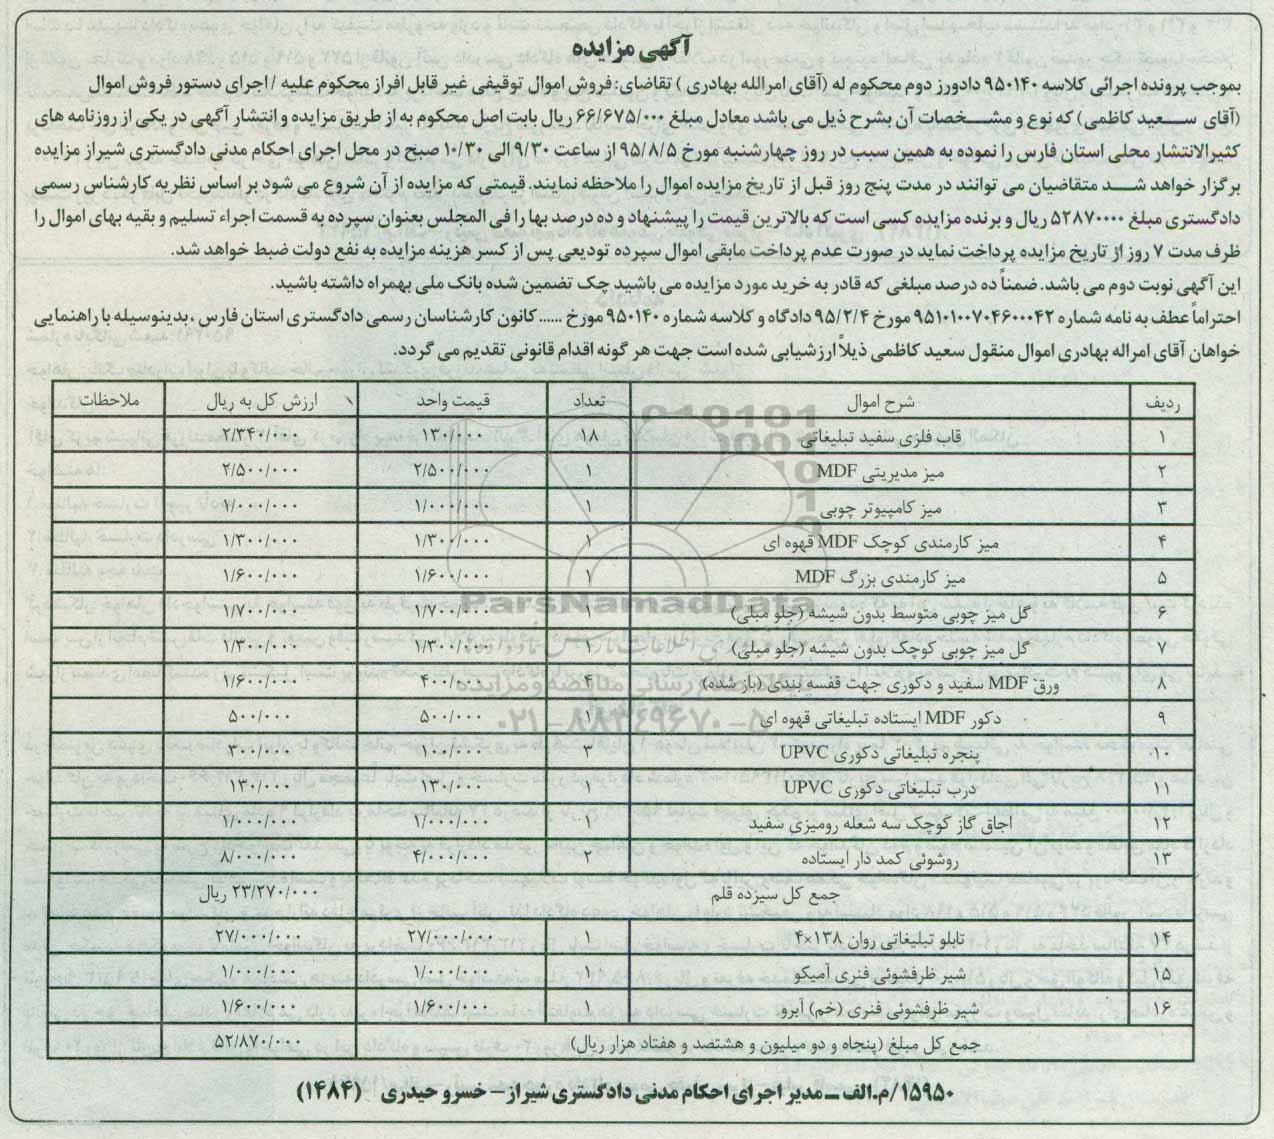 آگهی مزایده
بموجب پرونده اجرائی کلاسه ۹۵۰۱۴۰ دادورز دوم محکوم له (آقای امرالله بهادری ) تقاضای: فروش اموال توقیفی غیر قابل افراز محکوم علیه / اجرای دستور فروش اموال
(آقای سعید کاظمی) که نوع و مشخصات آن بشرح ذیل می باشد معادل مبلغ ۶۶/۶۷۵/۰۰۰ ریال بابت اصل محکوم به از طریق مزایده و انتشار آگهی در یکی از روزنامه های
کثیرالانتشار محلی استان فارس را نموده به همین سبب در روز چهارشنبه مورخ ۹۵/۸/۵ از ساعت ۹/۳۰ الی ۱۰/۳۰ صبح در محل اجرای احکام مدنی دادگستری شیراز مزایده
برگزار خواهد شد متقاضیان می توانند در مدت پنج روز قبل از تاریخ مزایده اموال را ملاحظه نمایند. قیمتی که مزایده از آن شروع می شود بر اساس نظریه کارشناس رسمی
دادگستری مبلغ ۵۲۸۷۰۰۰۰ ریال و برنده مزایده کسی است که بالاترین قیمت را پیشنهاد و ده درصد بها را فی المجلس بعنوان سپرده به قسمت اجراء تسلیم و بقیه بهای اموال را
ظرف مدت ۷ روز از تاریخ مزایده پرداخت نماید در صورت عدم پرداخت مابقی اموال سپرده تودیعی پس از کسر هزینه مزایده به نفع دولت ضبط خواهد شد.
این آگهی نوبت دوم می باشد. ضمناً ده درصد مبلغی که قادر به خرید مورد مزایده می باشید چک تضمین شده بانک ملی بهمراه داشته باشید.
احتراماً عطف به نامه شماره ۹۵۱۰۱۰۰۷۰۴۶۰۰۰۴۲ مورخ ۹۵/۲/۴ دادگاه و کلاسه شماره ۹۵۰۱۴۰ مورخ ...... کانون کارشناسان رسمی دادگستری استان فارس ،بدینوسیله با راهنمایی
خواهان آقای امراله بهادری اموال منقول سعید کاظمی ذیلاً ارزشیابی شده است جهت هر گونه اقدام قانونی تقدیم می گردد.
ردیف شرح اموال تعداد قیمت واحد ارزش کل به ریال ملاحظات
۱ قاب فلزی سفید تبلیغاتی ۱۸ ۱۳۰/۰۰۰ ۲/۳۴۰/۰۰۰
۲ میز مدیریتی MDF ۱ ۲/۵۰۰/۰۰۰ ۲/۵۰۰/۰۰۰
۳ میز کامپیوتر چوبی ۱ ۱/۰۰۰/۰۰۰ ۱/۰۰۰/۰۰۰
۴ میز کارمندی کوچک MDF قهوه ای ۱ ۱/۳۰۰/۰۰۰ ۱/۳۰۰/۰۰۰
۵ میز کارمندی بزرگ MDF ۱ ۱/۶۰۰/۰۰۰ ۱/۶۰۰/۰۰۰
۶ گل میز چوبی متوسط بدون شیشه (جلو مبلی) ۱ ۱/۷۰۰/۰۰۰ ۱/۷۰۰/۰۰۰
۷ گل میز چوبی کوچک بدون شیشه (جلو مبلی) ۱ ۱/۳۰۰/۰۰۰ ۱/۳۰۰/۰۰۰
۸ ورق MDF سفید و دکوری جهت قفسه بندی (باز شده) ۴ ۴۰۰/۰۰۰ ۱/۶۰۰/۰۰۰
۹ دکور MDF ایستاده تبلیغاتی قهوه ای ۱ ۵۰۰/۰۰۰ ۵۰۰/۰۰۰
۱۰ پنجره تبلیغاتی دکوری UPVC ۳ ۱۰۰/۰۰۰ ۳۰۰/۰۰۰
۱۱ درب تبلیغاتی دکوری UPVC ۱ ۱۳۰/۰۰۰ ۱۳۰/۰۰۰
۱۲ اجاق گاز کوچک سه شعله رومیزی سفید ۱ ۱/۰۰۰/۰۰۰ ۱/۰۰۰/۰۰۰
۱۳ روشوئی کمد دار ایستاده ۲ ۴/۰۰۰/۰۰۰ ۸/۰۰۰/۰۰۰
جمع کل سیزده قلم ۲۳/۲۷۰/۰۰۰ ریال
۱۴ تابلو تبلیغاتی روان ۱۳۸×۴ ۱ ۲۷/۰۰۰/۰۰۰ ۲۷/۰۰۰/۰۰۰
۱۵ شیر ظرفشوئی فنری آمیکو ۱ ۱/۰۰۰/۰۰۰ ۱/۰۰۰/۰۰۰
۱۶ شیر ظرفشوئی فنری (خم) آبرو ۱ ۱/۶۰۰/۰۰۰ ۱/۶۰۰/۰۰۰
جمع کل مبلغ (پنجاه و دو میلیون و هشتصد و هفتاد هزار ریال) ۵۲/۸۷۰/۰۰۰
۱۵۹۵۰/م.الف ــ مدیر اجرای احکام مدنی دادگستری شیراز – خسرو حیدری (۱۴۸۴)
ParsNamadData
پایگاه اطلاع رسانی مناقصه و مزایده
۰۲۱-۸۸۳۴۹۶۷۰-۵